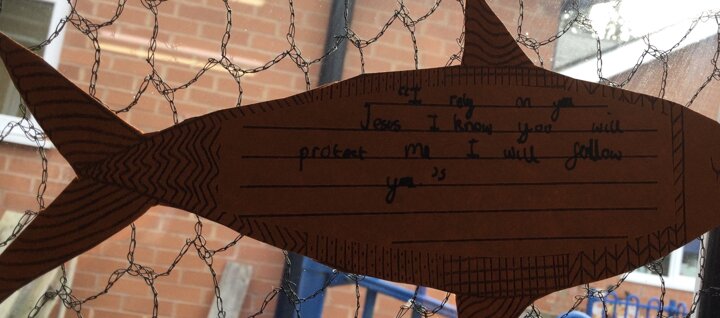 "I rely on you
Jesus I know you will
protect me I will follow
you."